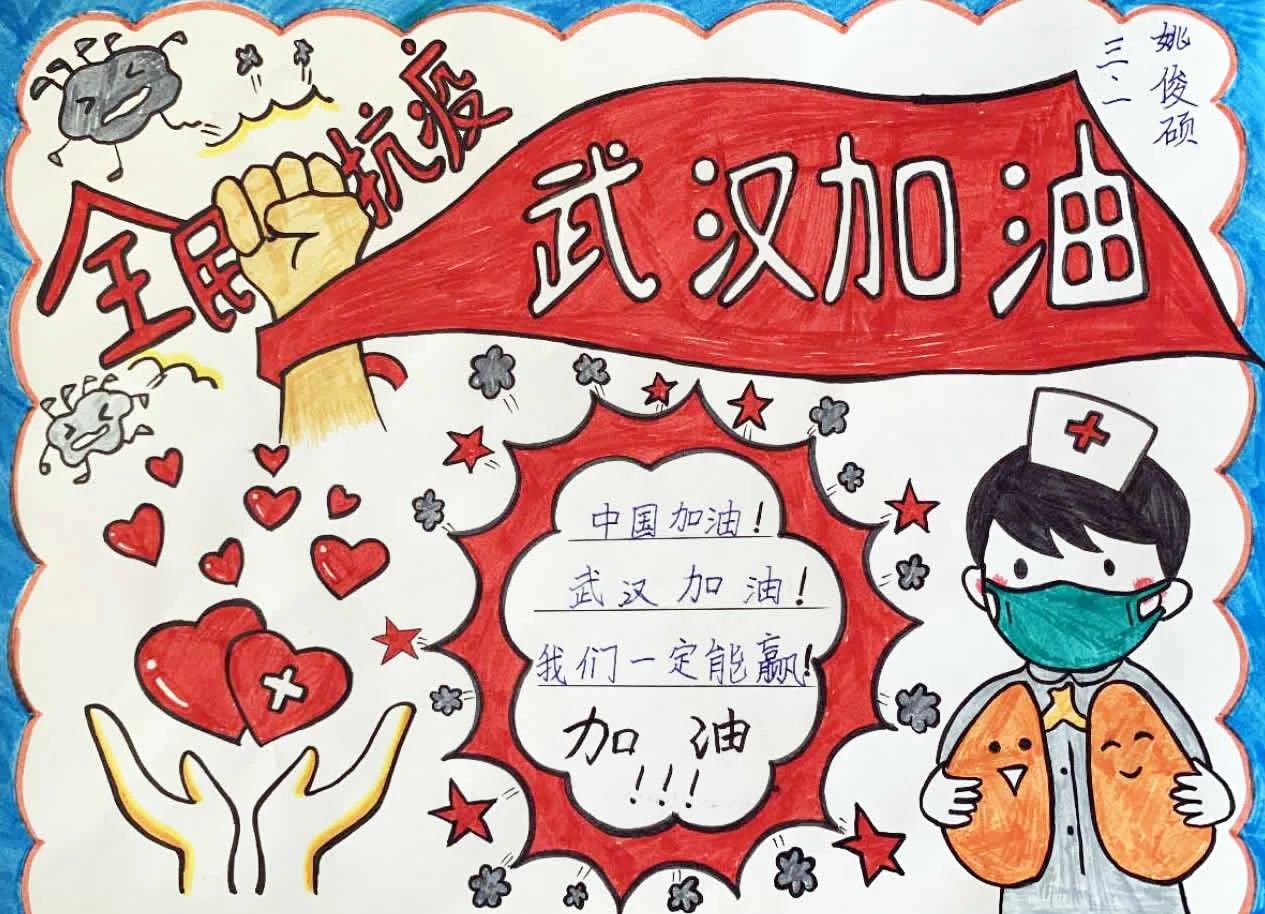 全民抗疫
武汉加油
姚俊硕
三、一
中国加油！
武汉加油！
我们一定能赢！
加油
！！！